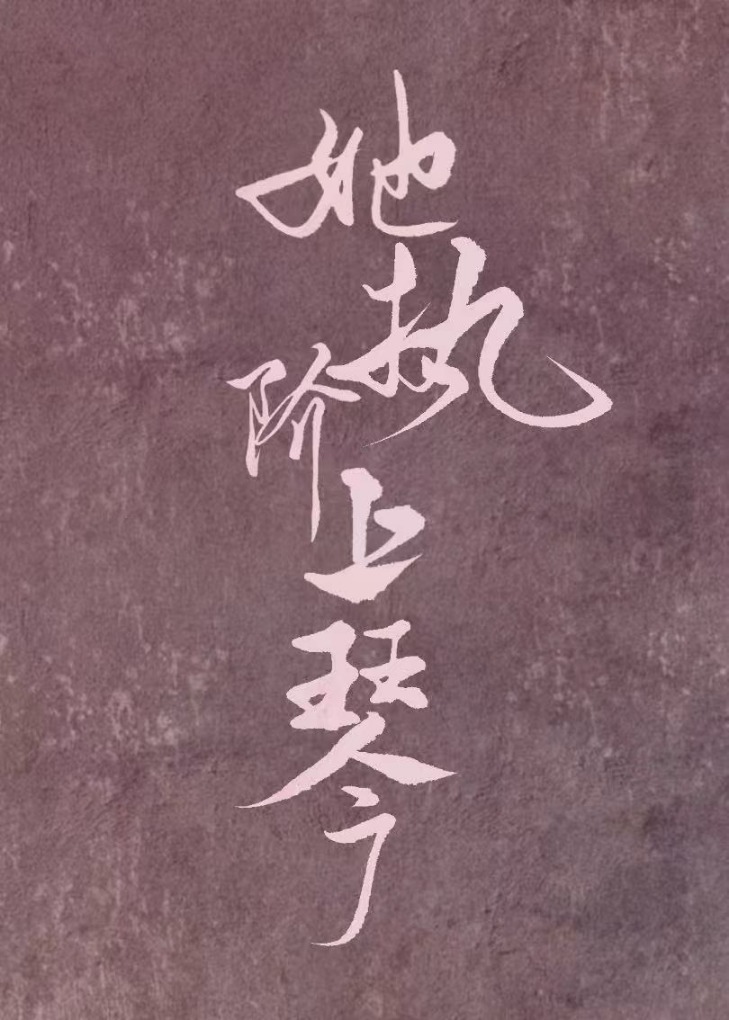 她执阶上琴